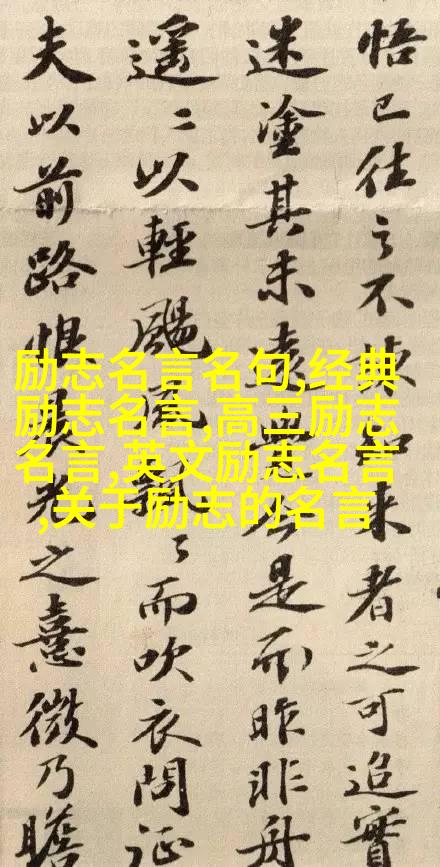 悟已往之不諫知来者之可追實
迷塗其未遠覺今是而昨非舟
遥〻以輕颺風飄〻而吹衣問征
夫以前路恨晨光之熹微乃瞻
励志名言名句,经典
励志名言,高三励志
名言,英文励志名言
,关于励志的名言